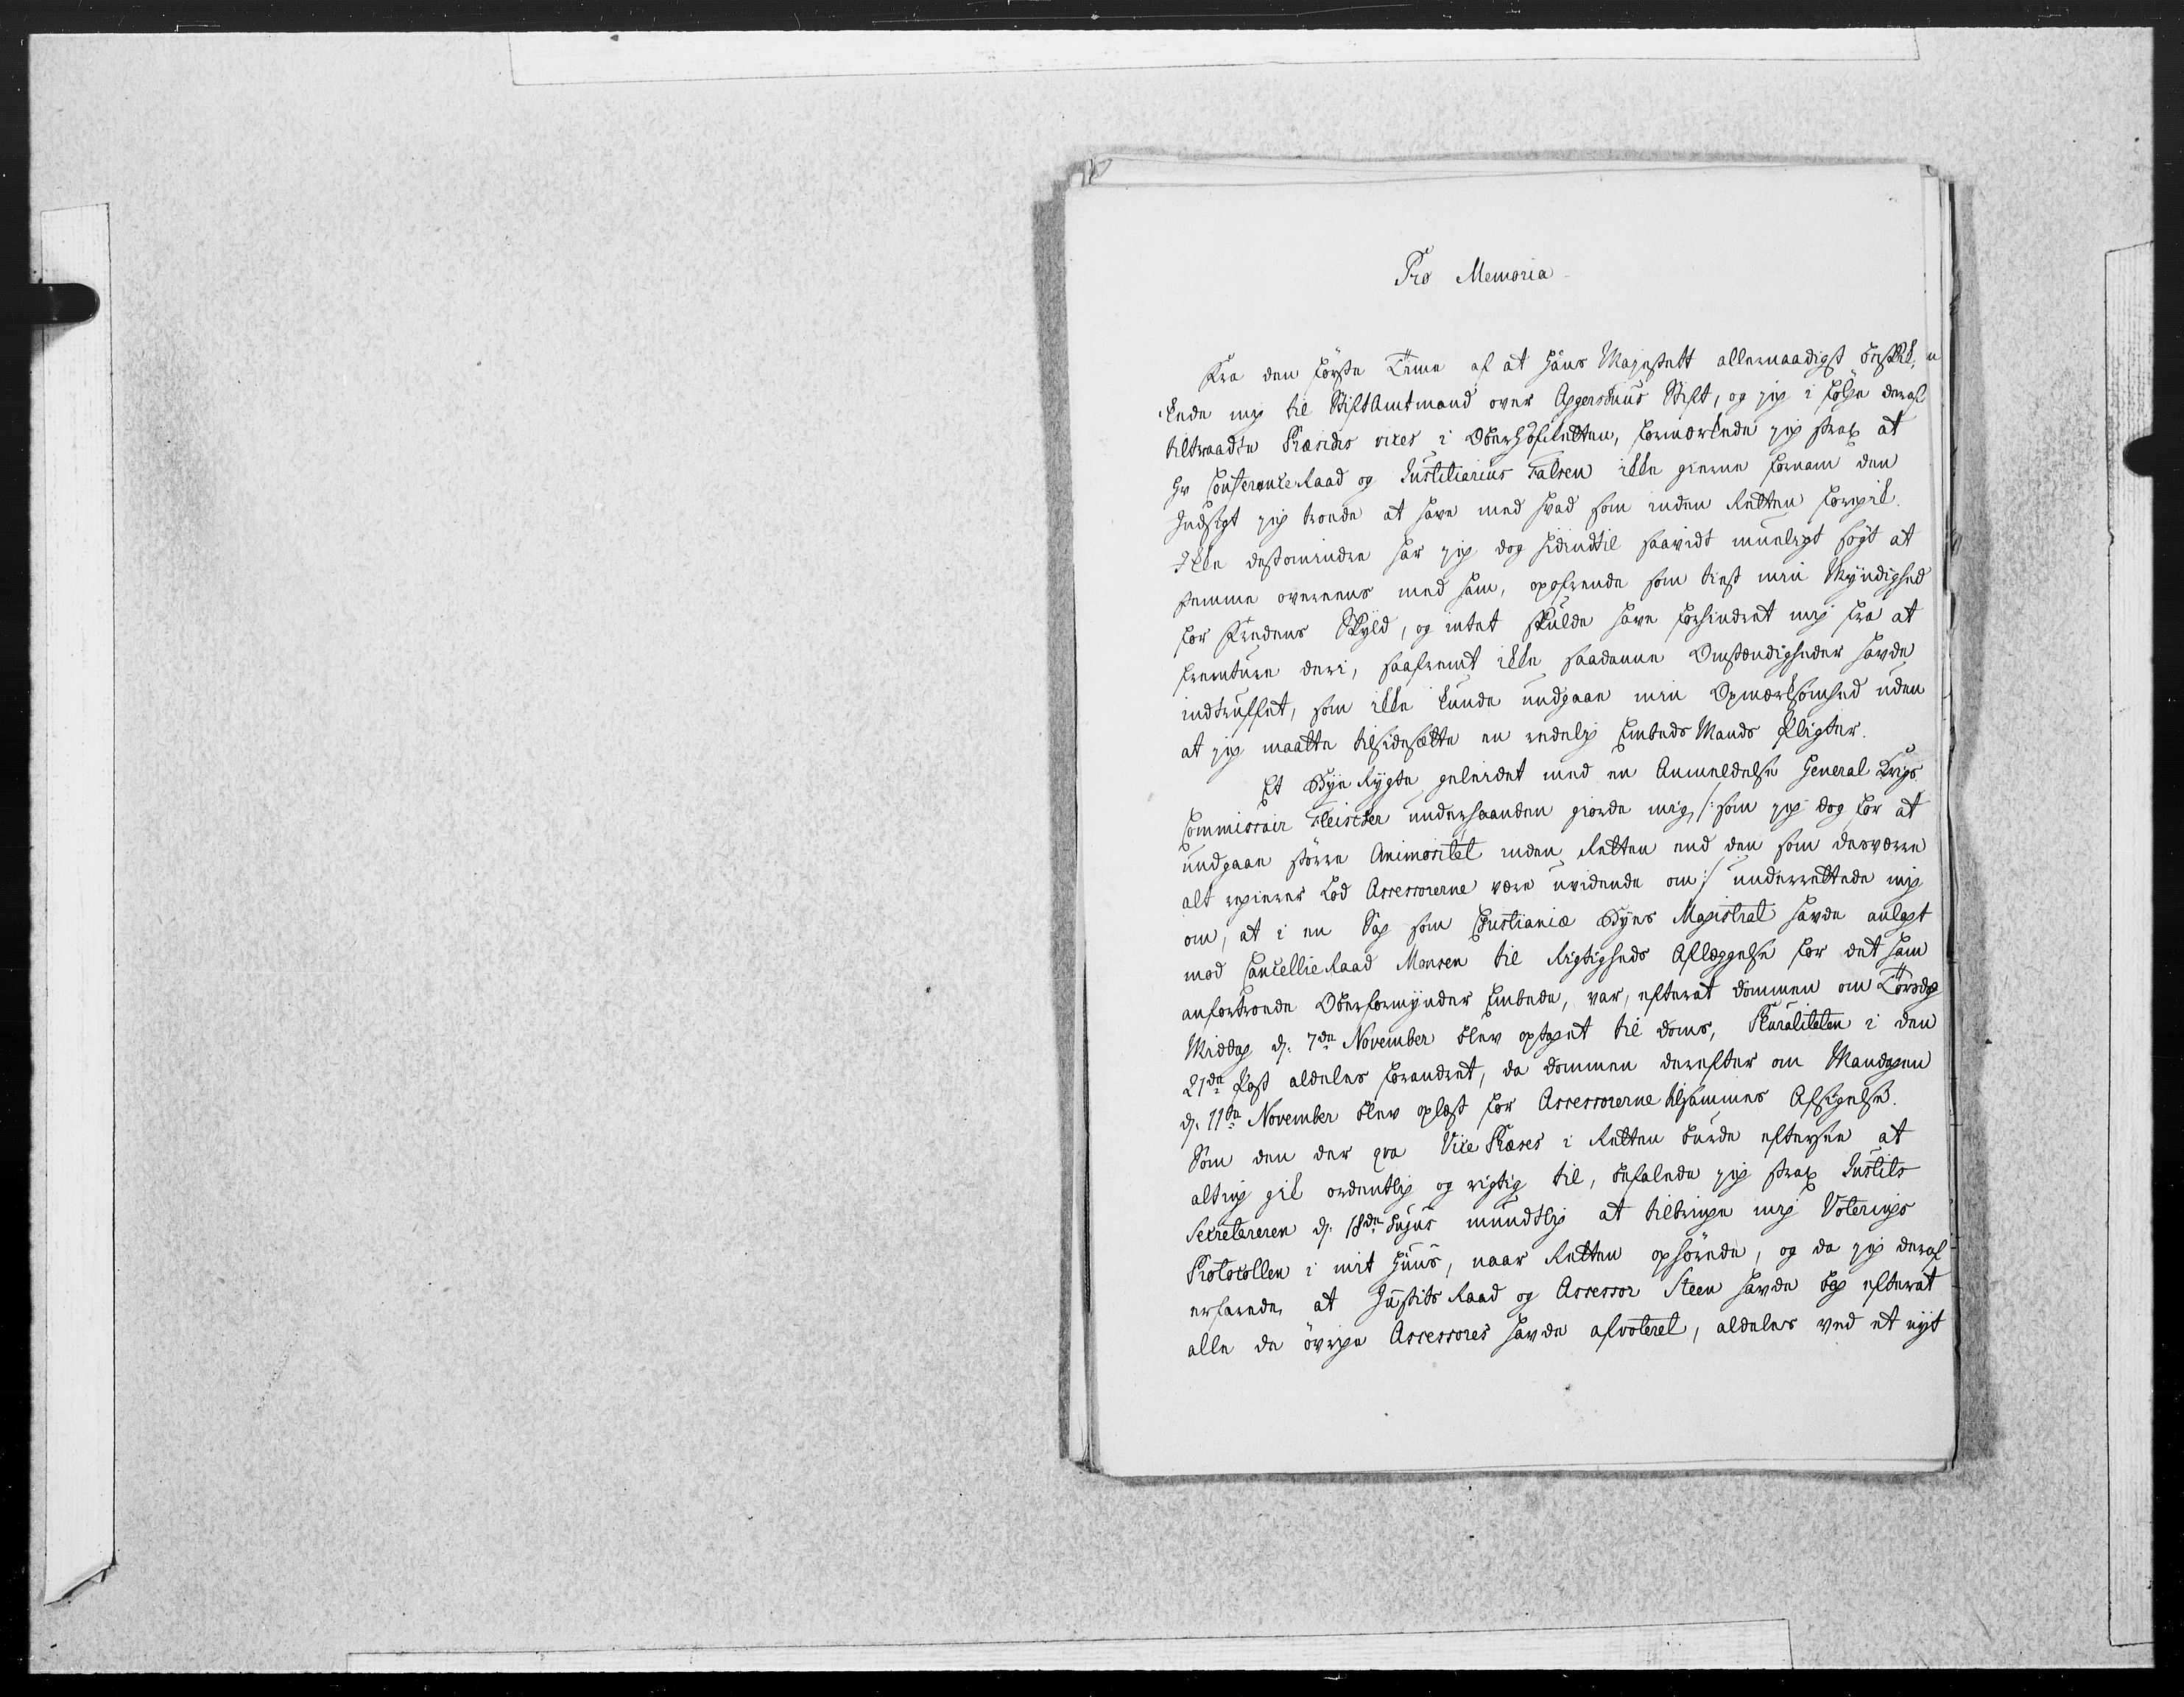 Pro Memoria
Fra den første Time af at Hans Majestætt allernaadigst beskik,
kede mig til StiftAmtmand over Aggershuus Stift, og jeg i følge deraf
tiltraadte Præsidis vices i OberHofRetten, formærkede jeg strax at
Hr ConferenceRaad og Justitiarius Falsen ikke gierne fornam den
Indsigt jeg troede at have med hvad som inden Retten foregik.
Ikke destomindre har jeg dog hidindtil saavidt mueligt søgt at
stemme overeens med ham, opofrende som tiest min Myndighed
for Fredens Skyld, og intet skulde have forhindret mig fra at
fremture deri, saafremt ikke saadanne Omstændigheder havde
indtruffet, som ikke kunde undgaae min Opmærksomhed uden
at jeg maatte tilsidesætte en redelig Embeds Mands Pligter.
Et Bye Rygte geleidet med en Anmeldelse General Krigs
Commissair Fleischer underhaanden giorde mig /: som jeg dog for at
undgaae større Animositet inden Retten end den som desværre
alt regierer lod Assessorerne være uvidende om :/ underrettede mig
om, at i en Sag som Christianiæ Byes Magistrat havde anlagt
mod CancellieRaad Monsen til Rigtigheds Aflæggelse for det ham
anfortroede Oberformynder Embede, var, efterat Dommen om Torsdag
Middag d: 7de November blev optaget til Doms, Pluraliteten i den
21de Post aldeles forandret, da Dommen derefter om Mandagen
d: 11te November blev oplæst for Assessorerne til sammes Afsigelse.
Som den der qva Vice Præses i Retten burde eftersee at
alting gik ordentlig og rigtig til, befalede jeg strax Justits
Secretereren d: 18de hujus mundtlig at tilbringe mig Voterings
Protocollen i mit Huus, naar Retten ophørede, og da jeg deraf
erfarede, at Justits Raad og Assessor Steen havde efterat
alle de øvrige Assessores havde afvoteret, aldeles ved et nyt